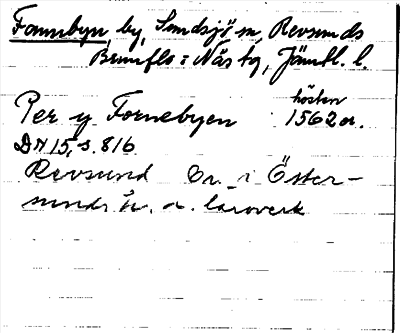 Fannbyn by, Sundsjö sn, Revsunds
Brunflo o Näs tg, Jämtl. l.
Per y Fornebyen hösten 1562 a.
DN 15, s. 816
Revsund Or. i Öster-
sunds h. a. läroverk